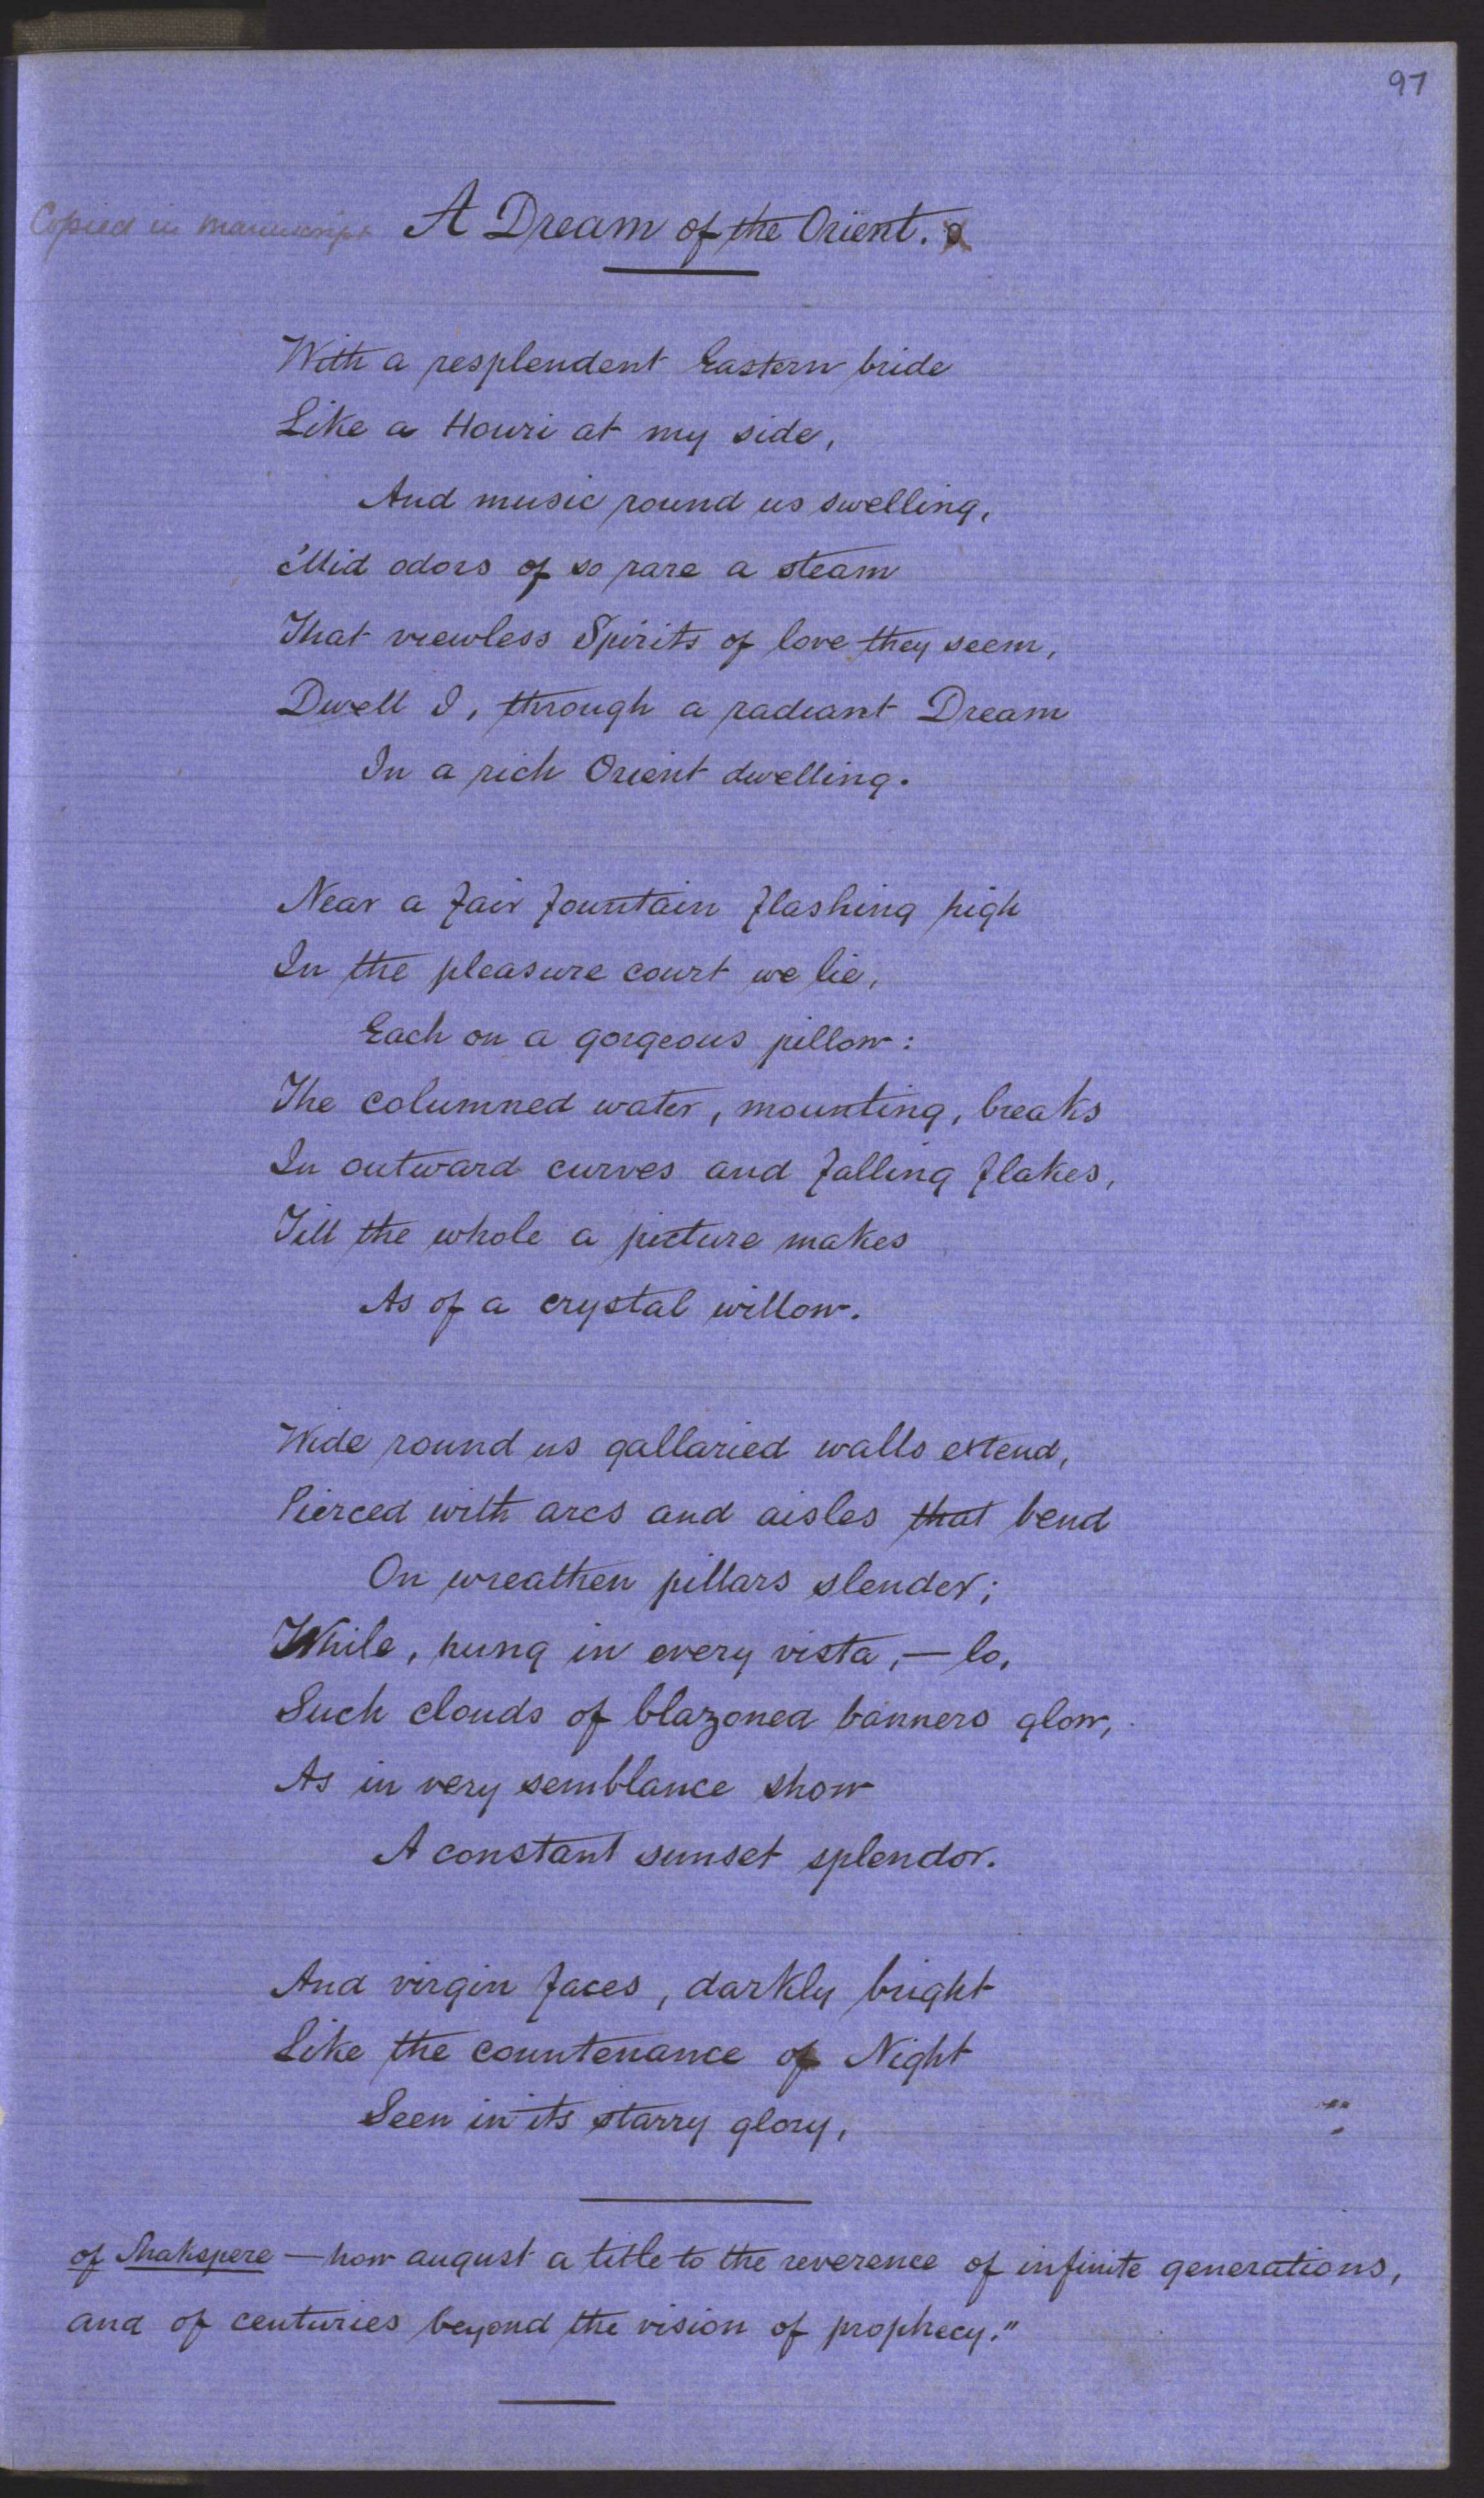 97
Copied in manuscript
A Dream of the Orient.
With a resplendent Eastern bride
Like a Houri at my side,
And music round us swelling,
'Mid odors of so rare a steam
That viewless Spirits of love they seem,
Dwell I, through a radiant Dream
In a rich Orient dwelling.
Near a fair fountain flashing high
In the pleasure court we lie,
Each on a gorgeous pillow:
The columned water, mounting, breaks
In outward curves and falling flakes,
Till the whole a picture makes
As of a crystal willow.
Wide round us gallaried walls extend,
Pierced with arcs and aisles that bend
On wreathen pillars slender;
While, hung in every vista,— lo,
Such clouds of blazoned banners glow,
As in very semblance show
A constant sunset splendor.
And virgin faces, darkly bright
Like the countenance of Night
Seen in its starry glory,
of Shakspere — how august a title to the reverence of infinite generations,
and of centuries beyond the vision of prophecy."